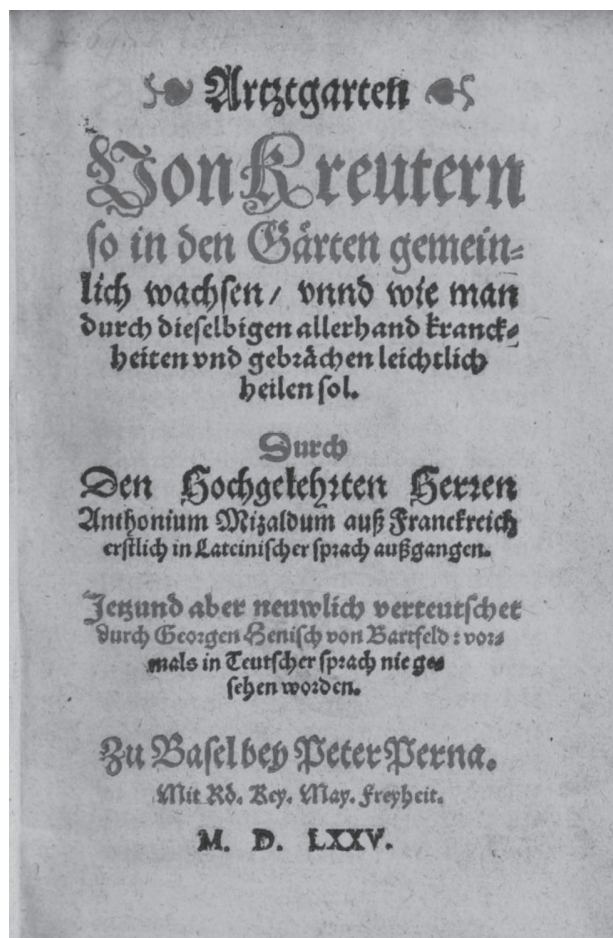 Artztgarten
Von Kreutern
so in den Gärten gemein-
lich wachsen / vnnd wie man
durch dieselbigen allerhand kranck-
heiten vnd gebrächen leichtlich
heilen sol.
Durch
Den Hochgelehrten Herren
Anthonium Mizaldum auß Franckreich
erstlich in Lateinischer sprach außgangen.
Jetzund aber neuwlich verteutschet
durch Georgen Henisch von Bartfeld: vor-
mals in Teutscher sprach nie ge-
sehen worden.
Zu Basel bey Peter Perna.
Mit Rö. Key. May. Freyheit.
M. D. LXXV.